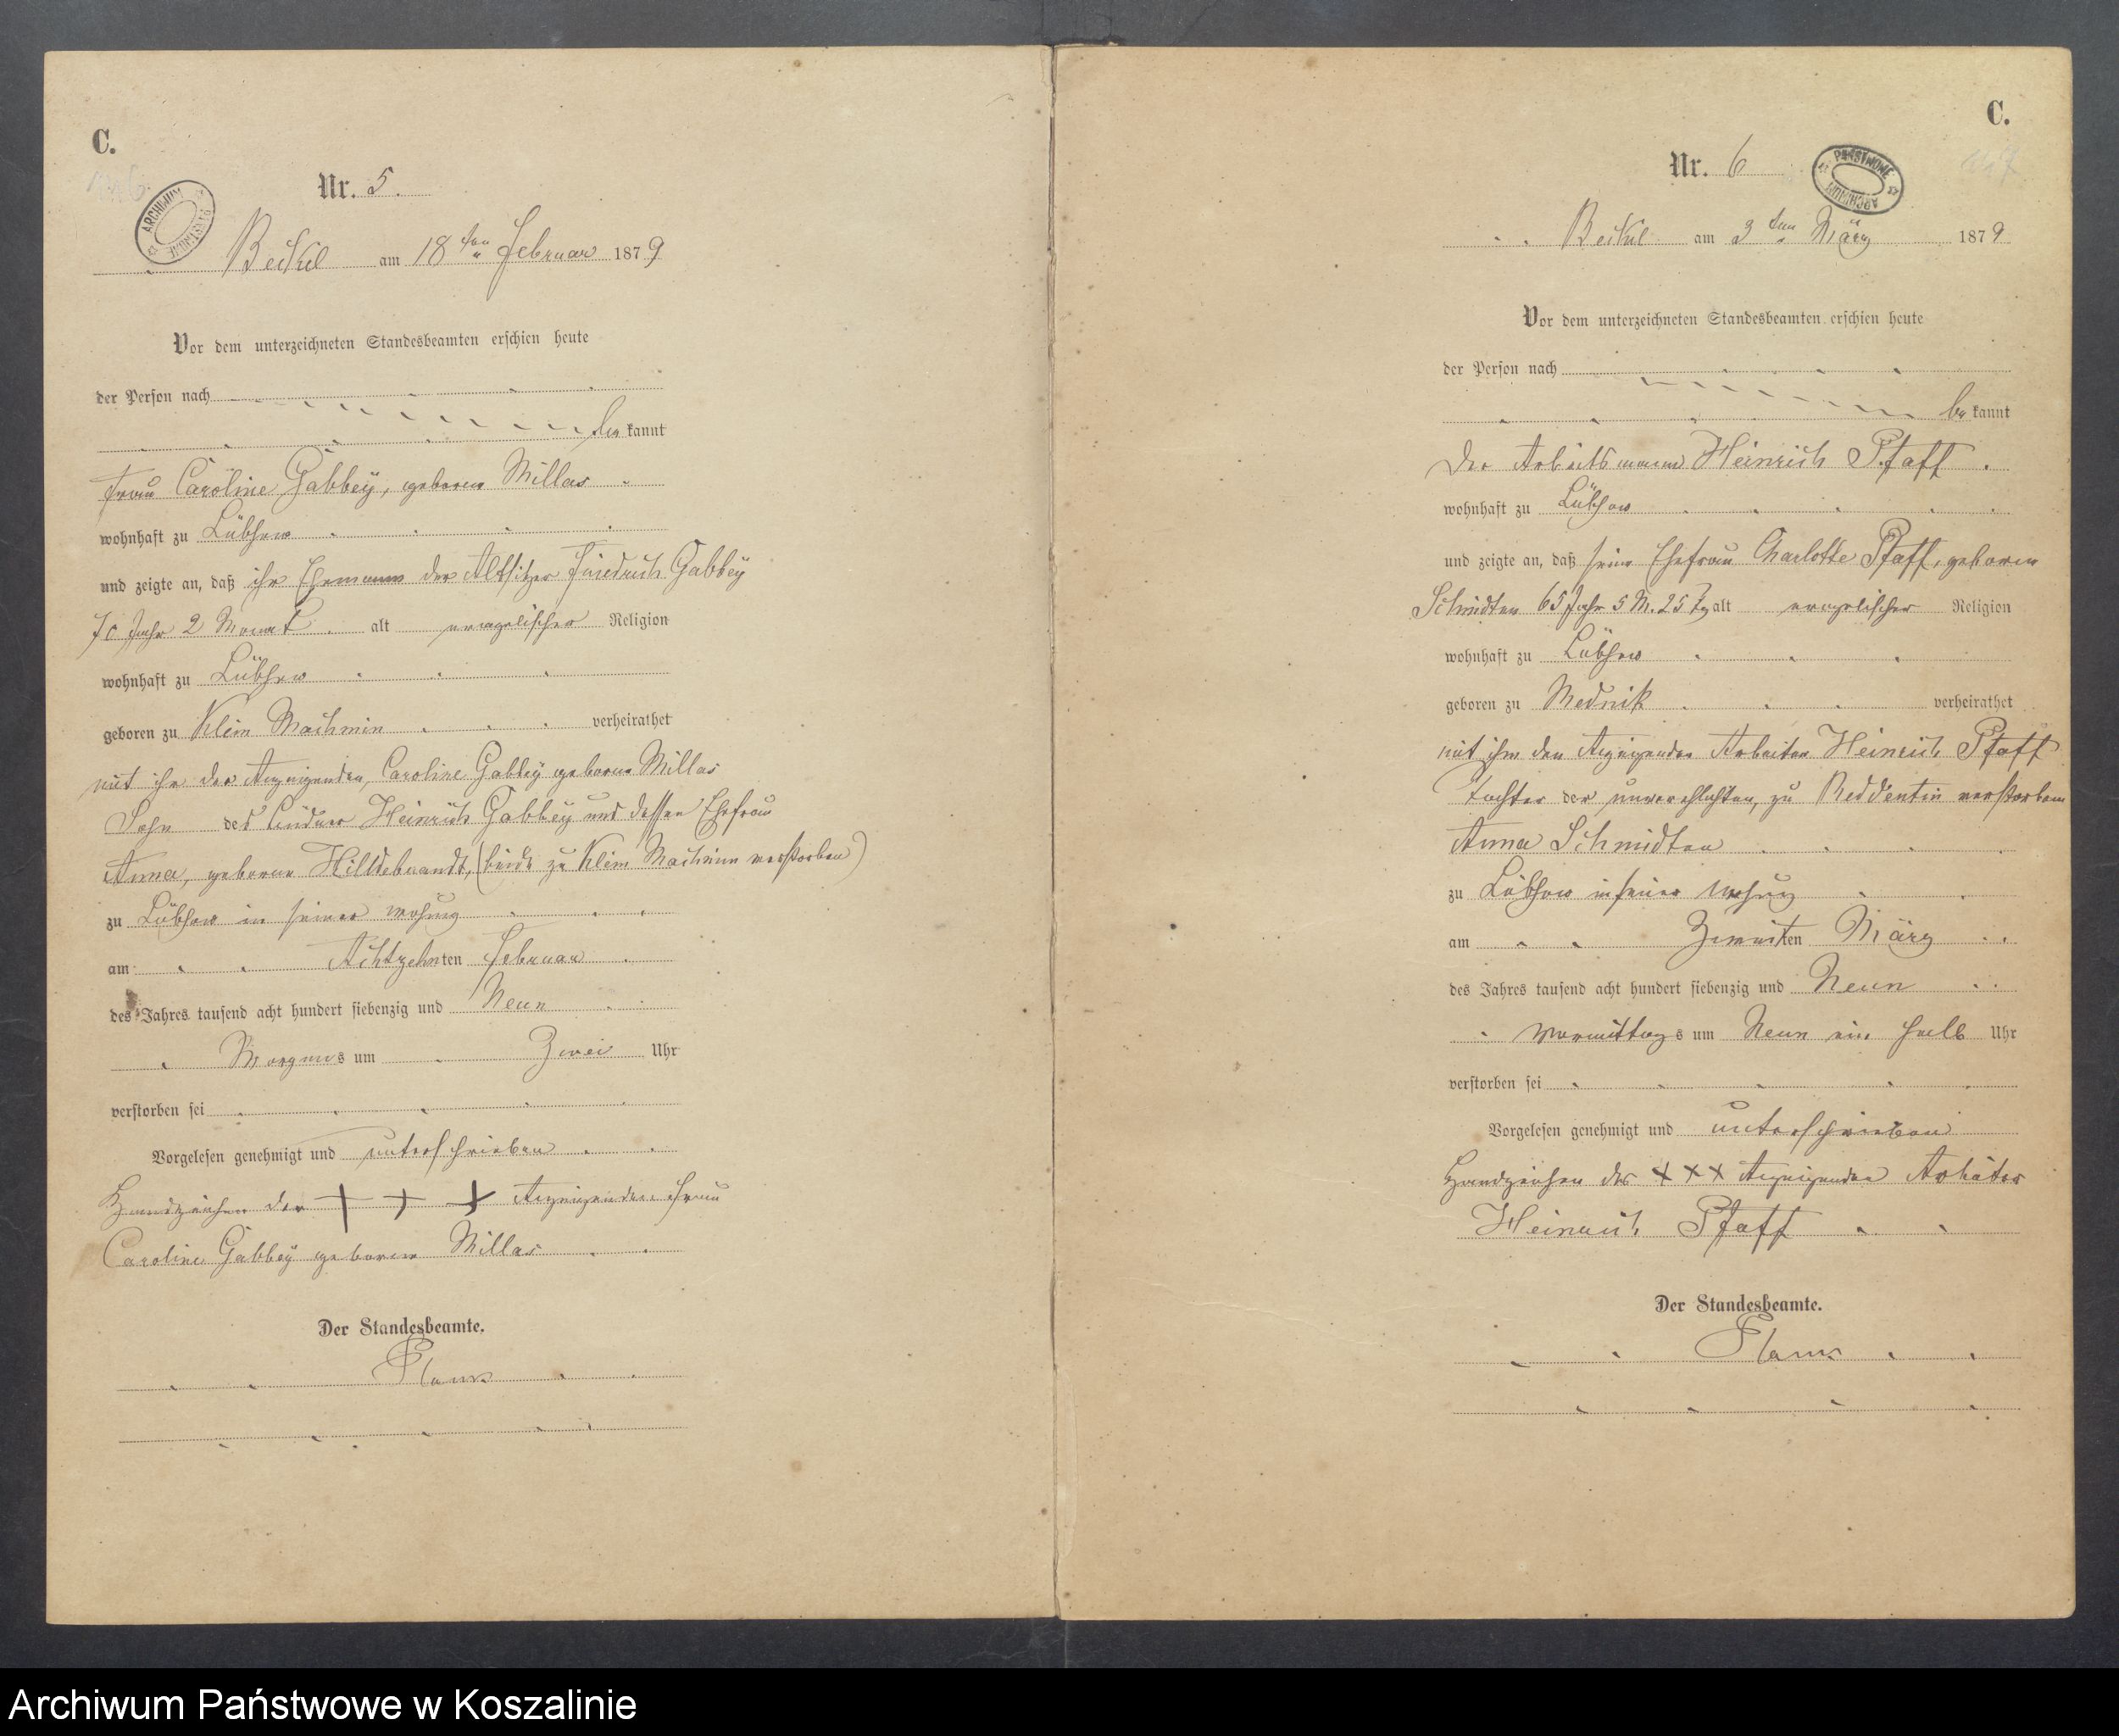 C.
Nr. 5.
ARCHIWUM PAŃSTWOWE
Beckel am 18ten Februar 1879
Vor dem unterzeichneten Standesbeamten erschien heute
der Person nach
bekannt
Frau Caroline Gabbey, geborene Millas
wohnhaft zu Lübsow
und zeigte an, daß ihr Ehemann der Altsitzer Friedrich Gabbey
70 Jahr 2 Monat alt evangelischer Religion
wohnhaft zu Lübsow
geboren zu Klein Machmin verheirathet
mit ihr der Anzeigenden, Caroline Gabbey geborne Millas
Sohn des Heinrich Gabbey und dessen Ehefrau
Anna, geborne Hilldebrandt, (beide zu Klein Machmin verstorben)
zu Lübsow in seiner Wohung
am Achtzehnten Februar
des Jahres tausend acht hundert siebenzig und Neun
Morgens um Zwei Uhr
verstorben sei
Vorgelesen genehmigt und unterschrieben
Handzeichen der + + + Anzeigenden Frau
Caroline Gabbey geborene Millas
Der Standesbeamte.
C.
Nr. 6
PAŃSTWOWE ARCHIWUM
Beckel am 3ten März 1879
Vor dem unterzeichneten Standesbeamten erschien heute
der Person nach
bekannt
Der Arbeitsmann Heinrich Pfaff
wohnhaft zu Lübsow
und zeigte an, daß seine Ehefrau Charlotte Pfaff, geborne
Schmidten 65 Jahr 5 M. 25 Tg alt evangelischer Religion
wohnhaft zu Lübsow
geboren zu Wednik verheirathet
mit ihm den Anzeigenden Arbeiter Heinrich Pfaff
Tochter der unverehlichten, zu Reddentin verstorbenen
Anna Schmidten
zu Lübsow in seiner Wohung
am Zweiten März
des Jahres tausend acht hundert siebenzig und Neun
Vormittags um Neun ein halb Uhr
verstorben sei
Vorgelesen genehmigt und unterschrieben
Handzeichen des + + + Anzeigenden Arbeiter
Heinrich Pfaff
Der Standesbeamte.
Archiwum Państwowe w Koszalinie